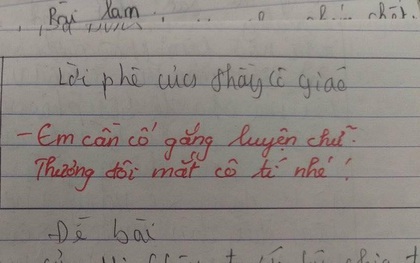 Bài làm
Lời phê của thầy cô giáo
- Em cần cố gắng luyện chữ.
Thương đôi mắt cô tí nhé!
Đề bài